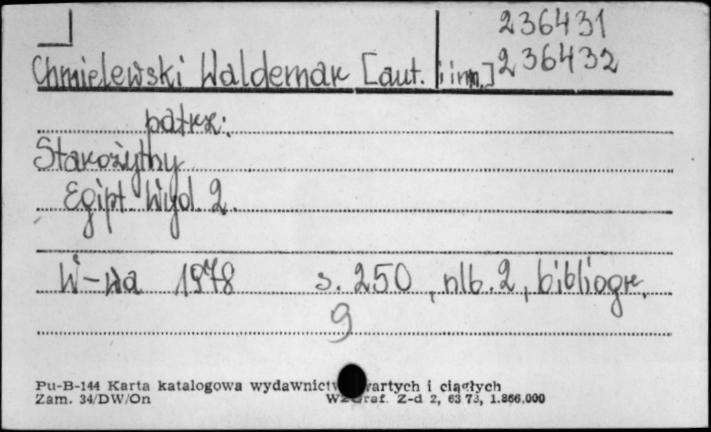 236431
Chmielewski Waldemar [aut. i inn.] 236432
patrz:
Starożytny
Egipt. Wyd. 2.
W-wa 1978 s. 250, nlb. 2, bibliogr.
9
Pu-B-144 Karta katalogowa wydawnictw zwartych i ciągłych
Zam. 34/DW/On WZGraf. Z-d 2, 63 73, 1.866.000